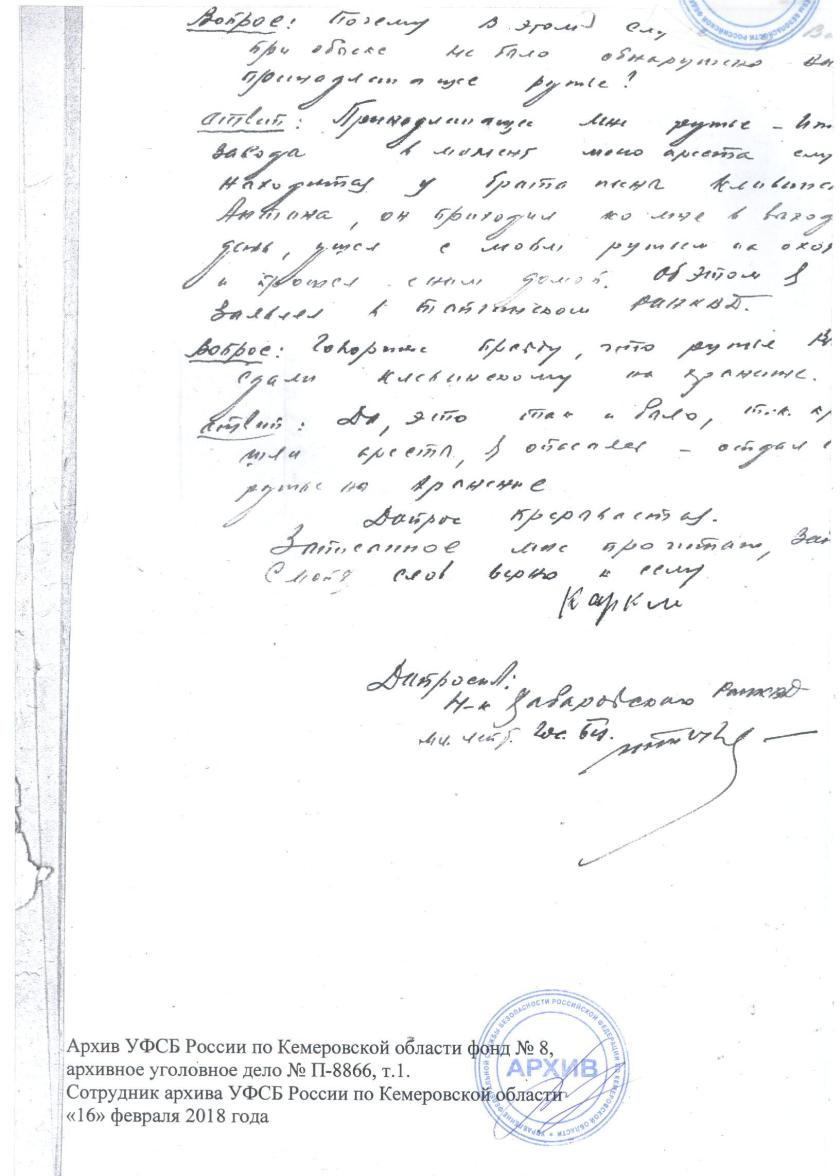 Вопрос: Почему в этом слу
при обыске не было обнаружено
принадлежащее ружье?
Ответ: Принадлежащее мне ружье –
завода в момент моего ареста
находится у брата
Антона, он приходил ко мне в выход
день, ушел с моим ружьем на охо
и прошел с ним домой. Об этом я
заявлял в РОНКВД.
Вопрос: Говорите правду, что ружье
сдали на хранение.
Ответ: Да, это так и было, т.к.
шли аресты, я опасался – отдал
ружье на хранение
Допрос прерывается.
Записанное мне прочитано,
с моих слов верно к сему
Допросил:
Н-к
мл. лейт. Гос. Без.
Архив УФСБ России по Кемеровской области фонд № 8,
архивное уголовное дело № П-8866, т.1.
Сотрудник архива УФСБ России по Кемеровской области
«16» февраля 2018 года
АРХИВ
УПРАВЛЕНИЕ ФЕДЕРАЛЬНОЙ СЛУЖБЫ БЕЗОПАСНОСТИ РОССИЙСКОЙ ФЕДЕРАЦИИ ПО КЕМЕРОВСКОЙ ОБЛАСТИ